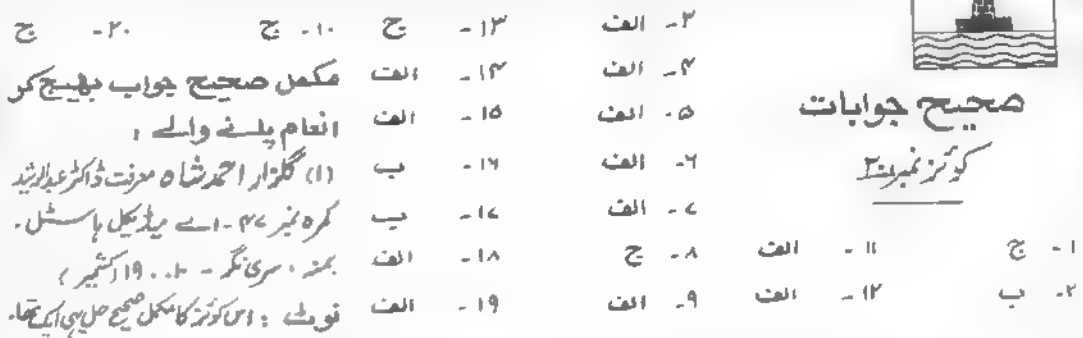 صحیح جوابات
کوئز نمبر
۱- ج
۲- ب
۱۱- الف
۱۲- الف
۳- الف
۴- الف
۵- الف
۶- الف
۷- الف
۸- ج
۹- الف
۱۳- ج
۱۴- الف
۱۵- الف
۱۶- ب
۱۷- ب
۱۸- الف
۱۹- الف
۱۰- ج ۲۰- ج
مکمل صحیح جواب بھیج کر
انعام پانے والے :
(۱) گلزار احمد شاہ معرفت ڈاکٹر عبدالرشید
کمرہ نمبر ۴۷-اے میڈیکل ہاسٹل۔
بمنہ ، سری نگر - ۱۹۰۰۱۰ (کشمیر)
نوٹ : اس کوئز کا مکمل صحیح حل یہی ایک تھا۔